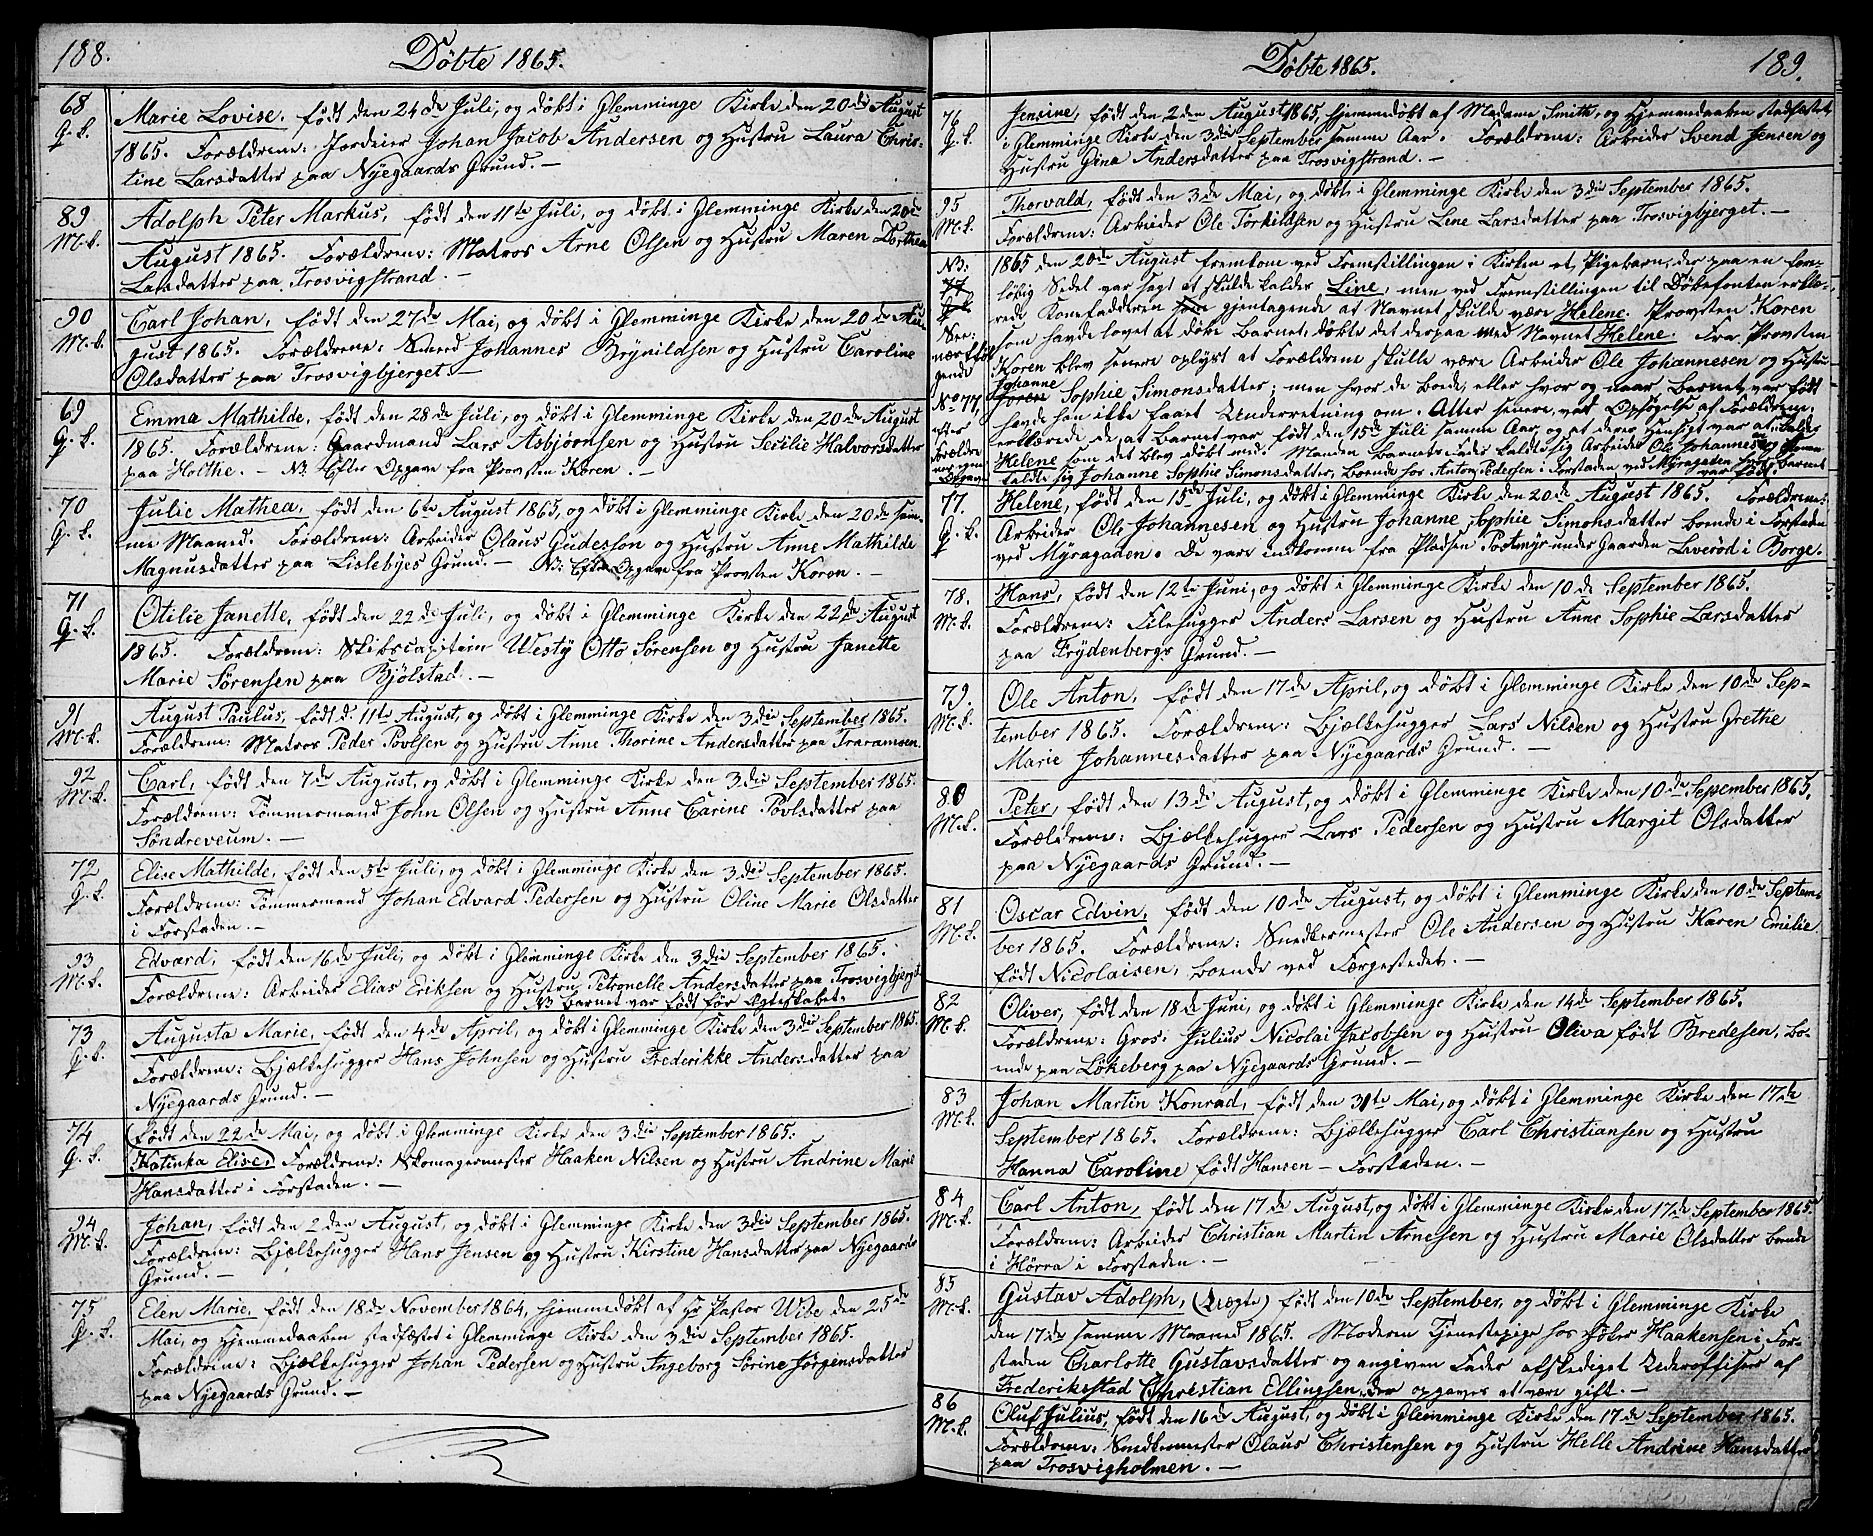 188.
Döbte 1865.
68 Marie Lovise, født den 24de Juli, og døbt i Glemminge Kirke den 20de August
Q. k. 1865. Forældrene: Jordeier Johan Jacob Andersen og Hustru Laura Chris-
tine Larsdatter paa Nyegaards Grund. —
89 Adolph Peter Markus, født den 11te Juli, og døbt i Glemminge Kirke den 20de
M. k. August 1865. Forældrene: Matros Arne Olsen og Hustru Maren Dorthea
Larsdatter paa Trosvigstrand. —
90 Carl Johan, født den 27de Mai, og døbt i Glemminge Kirke den 20de Au-
M. k. gust 1865. Forældrene: Smed Johannes Brynildsen og Hustru Caroline
Olsdatter paa Trosvigbjerget. —
69 Emma Mathilde, født den 28de Juli, og døbt i Glemminge Kirke den 20de August
Q. k. 1865. Forældrene: Gaardmand Lars Asbjørnsen og Hustru Secilie Halvorsdatter
paa Holthe. — NB. Efter Opgave fra Provsten Koren. —
70 Julie Mathea, født den 6te August 1865, og døbt i Glemminge Kirke den 20de sam-
Q. k. me Maaned. Forældrene: Arbeider Olaus Gudesson og Hustru Anne Mathilde
Magnusdatter paa Lislebyes Grund. — NB: Efter Opgave fra Provsten Koren. —
71 Otilie Janette, født den 22de Juli, og døbt i Glemminge Kirke den 22de August
Q. k. 1865. Forældrene: Skibscapitein Westy Otto Sørensen og Hustru Janette
Marie Sørensen paa Bjølstad. —
91 August Paulus, født d. 11te August, og døbt i Glemminge Kirke den 3die September 1865.
M. k. Forældrene: Matros Peder Povlsen og Hustru Anne Thorine Andersdatter paa Traramsen.
92 Carl, født den 7de August, og døbt i Glemminge Kirke den 3die September 1865.
M. k. Forældrene: Tømmermand John Olsen og Hustru Anne Carine Povlsdatter paa
Søndreveum. —
72 Elise Mathilde, født den 5te Juli, og døbt i Glemminge Kirke den 3die September 1865.
Q. k. Forældrene: Tømmermand Johan Edvard Pedersen og Hustru Oline Marie Olsdatter
i Forstaden. —
93 Edvard, født den 16de Juli, og døbt i Glemminge Kirke den 3die September 1865.
M. k. Forældrene: Arbeider Elias Eriksen og Hustru Petronelle Andersdatter paa Trosvigbjerget
NB barnet var født før Ægteskabet.
73 Augusta Marie, født den 4de April, og døbt i Glemminge Kirke den 3die September 1865.
Q. k. Forældrene: Bjælkehugger Hans Johnsen og Hustru Frederikke Andersdatter paa
Nyegaards Grund. —
74 født den 22de Mai, og døbt i Glemminge Kirke den 3die September 1865.
Q. k. Katinka Elise, Forældrene: Skomagermester Haaken Nilsen, og Hustru Andrine Marie
Hansdatter i Forstaden. —
94 Johan, født den 2den August, og døbt i Glemminge Kirke den 3die September 1865.
M. k. Forældrene: Bjælkehugger Hans Jensen og Hustru Kirstine Hansdatter paa Nyegaards
Grund. —
75 Elen Marie, født den 18de November 1864, hjemmedøbt af Hr Pastor Wibe den 25de
Q. k. Mai, og Hjemmedaaben stadfæstet i Glemminge Kirke den 3die September 1865.
Forældrene: Bjælkehugger Johan Pedersen og Hustru Ingeborg Sørine Jørgensdatter
paa Nyegaards Grund. —
Döbte 1865.
189.
76 Jensine, født den 2den August 1865, hjemmedøbt af Madame Smith, og Hjemmedaaben stadfæstet
Q. k. i Glemminge Kirke den 3die September samme Aar. Forældrene: Arbeider Svend Jensen og
Hustru Gina Andersdatter paa Trosvigstrand. —
95 Thorvald, født den 3de Mai, og døbt i Glemminge Kirke den 3die September 1865.
M. k. Forældrene: Arbeider Ole Torkildsen og Hustru Line Larsdatter paa Trosvigbjerget. —
NB: 1865 den 20de August fremkom ved Fremstillingen i Kirken et Pigebarn, der paa en fore-
77 løbig Sedel var sagt at skulde kaldes Line, men ved Fremstillingen til Døbefonten erklæ-
rede Konefadderen gjentagende at Navnet skulde være Helene. Provsten Koren
See som havde lovet at døbe barnet, døbte det derpaa med Navnet Helene. Fra Provsten
nærføl- Koren blev senere oplyst at Forældrene skulle være Arbeider Ole Johannesen og Hustru
gende Johanne Sophie Simonsdatter; men hvor de boede, eller hvor og naar barnet var født
No 77, havde han ikke faaet Underretning om. Atter senere, ved Opsøgelse af Forældrene,
efter erklærede de, at barnet var født den 15de Juli samme Aar, og at deres Hensigt var at kalde
Forældre Helene som det blev døbt med. Manden barnets Fader kaldte sig Arbeider Ole Johannesen og Konen
nes egen Opgave kaldte sig Johanne Sophie Simonsdatter, boende hos Anton Pedersen i Forstaden ved Myragaden hvor barnet
var født.
77. Helene, født den 15de Juli, og døbt i Glemminge Kirke den 20de August 1865. Forældrene:
Q. k. Arbeider Ole Johannesen og Hustru Johanne Sophie Simonsdatter boende i Forstaden
ved Myragaden. De vare indkomne fra Pladsen Postmyr under Gaarden Lererød i Borge.
78. Hans, født den 12te Juni, og døbt i Glemminge Kirke den 10de September 1865.
M. k. Forældrene: Filehugger Anders Larsen og Hustru Anne Sophie Larsdatter
paa Frydenbergs Grund. —
79. Ole Anton, født den 17de April, og døbt i Glemminge Kirke den 10de Sep-
M. k. tember 1865. Forældrene: Bjælkehugger Lars Nilsen og Hustru Grethe
Marie Johannesdatter paa Nyegaards Grund. —
80 Peter, født den 13de August, og døbt i Glemminge Kirke den 10de September 1865.
M. k. Forældrene: Bjælkehugger Lars Pedersen og Hustru Margit Olsdatter
paa Nyegaards Grund. —
81 Oscar Edvin, født den 10de August, og døbt i Glemminge Kirke den 10de Septem-
M. k. ber 1865. Forældrene: Snedkermester Ole Andersen og Hustru Karen Emilie
født Nicolaisen, boende ved Færgestedet. —
82 Oliver, født den 18de Juni, og døbt i Glemminge Kirke den 14de September 1865.
M. k. Forældrene: Gros: Julius Nicolai Jacobsen og Hustru Oliva født Bredesen, bo-
ende paa Løkeberg paa Nyegaards Grund. —
83 Johan Martin Konrad, født den 31te Mai, og døbt i Glemminge Kirke den 17de
M. k. September 1865. Forældrene: Bjælkehugger Carl Christiansen og Hustru
Hanna Caroline født Hansen — Forstaden. —
84 Carl Anton, født den 17de August, og døbt i Glemminge Kirke den 17de September 1865.
M. k. Forældrene: Arbeider Christian Martin Arnesen og Hustru Marie Olsdatter boende
i Hørra i Forstaden. —
85 Gustav Adolph, (Uægte) født den 10de September, og døbt i Glemminge Kirke
M. k. den 17de samme Maaned 1865. Moderen Tjenestepige hos Haakensen i For-
staden Charlotte Gustavsdatter og angiven Fader afskediget Underofficer af
Frederiksstad Christian Ellingsen der opgaves at være gift. —
86 Oluf Julius, født den 16de August, og døbt i Glemminge Kirke den 17de September 1865.
M. k. Forældrene: Snedkermester Olaus Christensen og Hustru Helle Andrine Hansdatter
paa Trosvigholmen. —